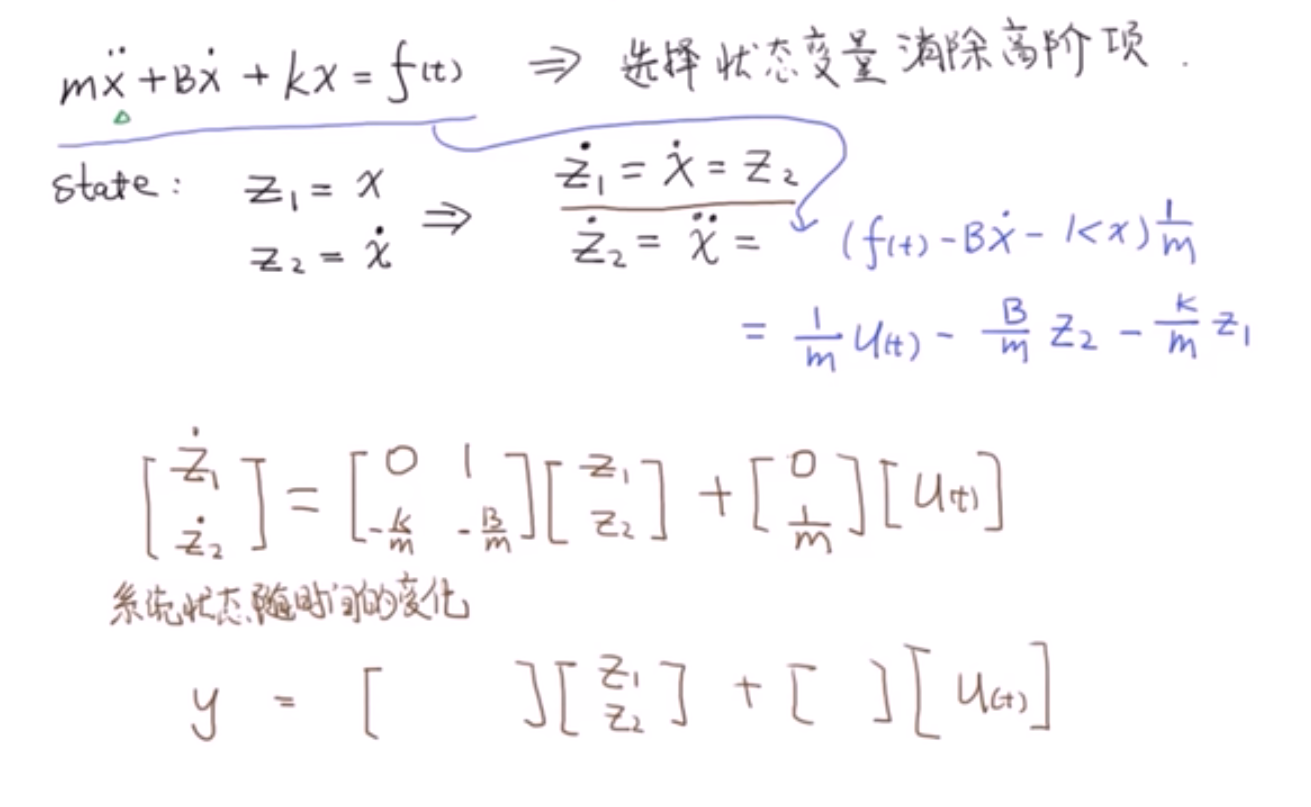 mẍ + Bẋ + kx = f(t) ⇒ 选择状态变量 消除高阶项.
state: z₁ = x ⇒ ż₁ = ẋ = z₂
z₂ = ẋ ż₂ = ẍ = (f(t) - Bẋ - Kx) 1/m
= 1/m u(t) - B/m z₂ - K/m z₁
[ż₁ ; ż₂] = [0 1 ; -K/m -B/m] [z₁ ; z₂] + [0 ; 1/m] [u(t)]
系统状态随时间的变化
y = [ ] [z₁ ; z₂] + [ ] [u(t)]